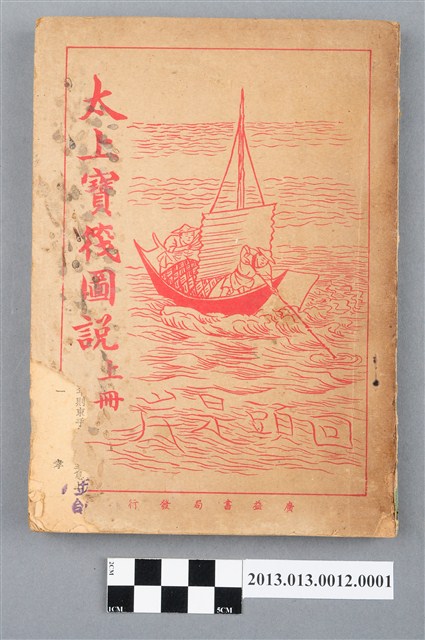 太上寶筏圖說 上冊
回頭是岸
廣益書局發行
一
2CM
1CM
5CM
2013.013.0012.0001